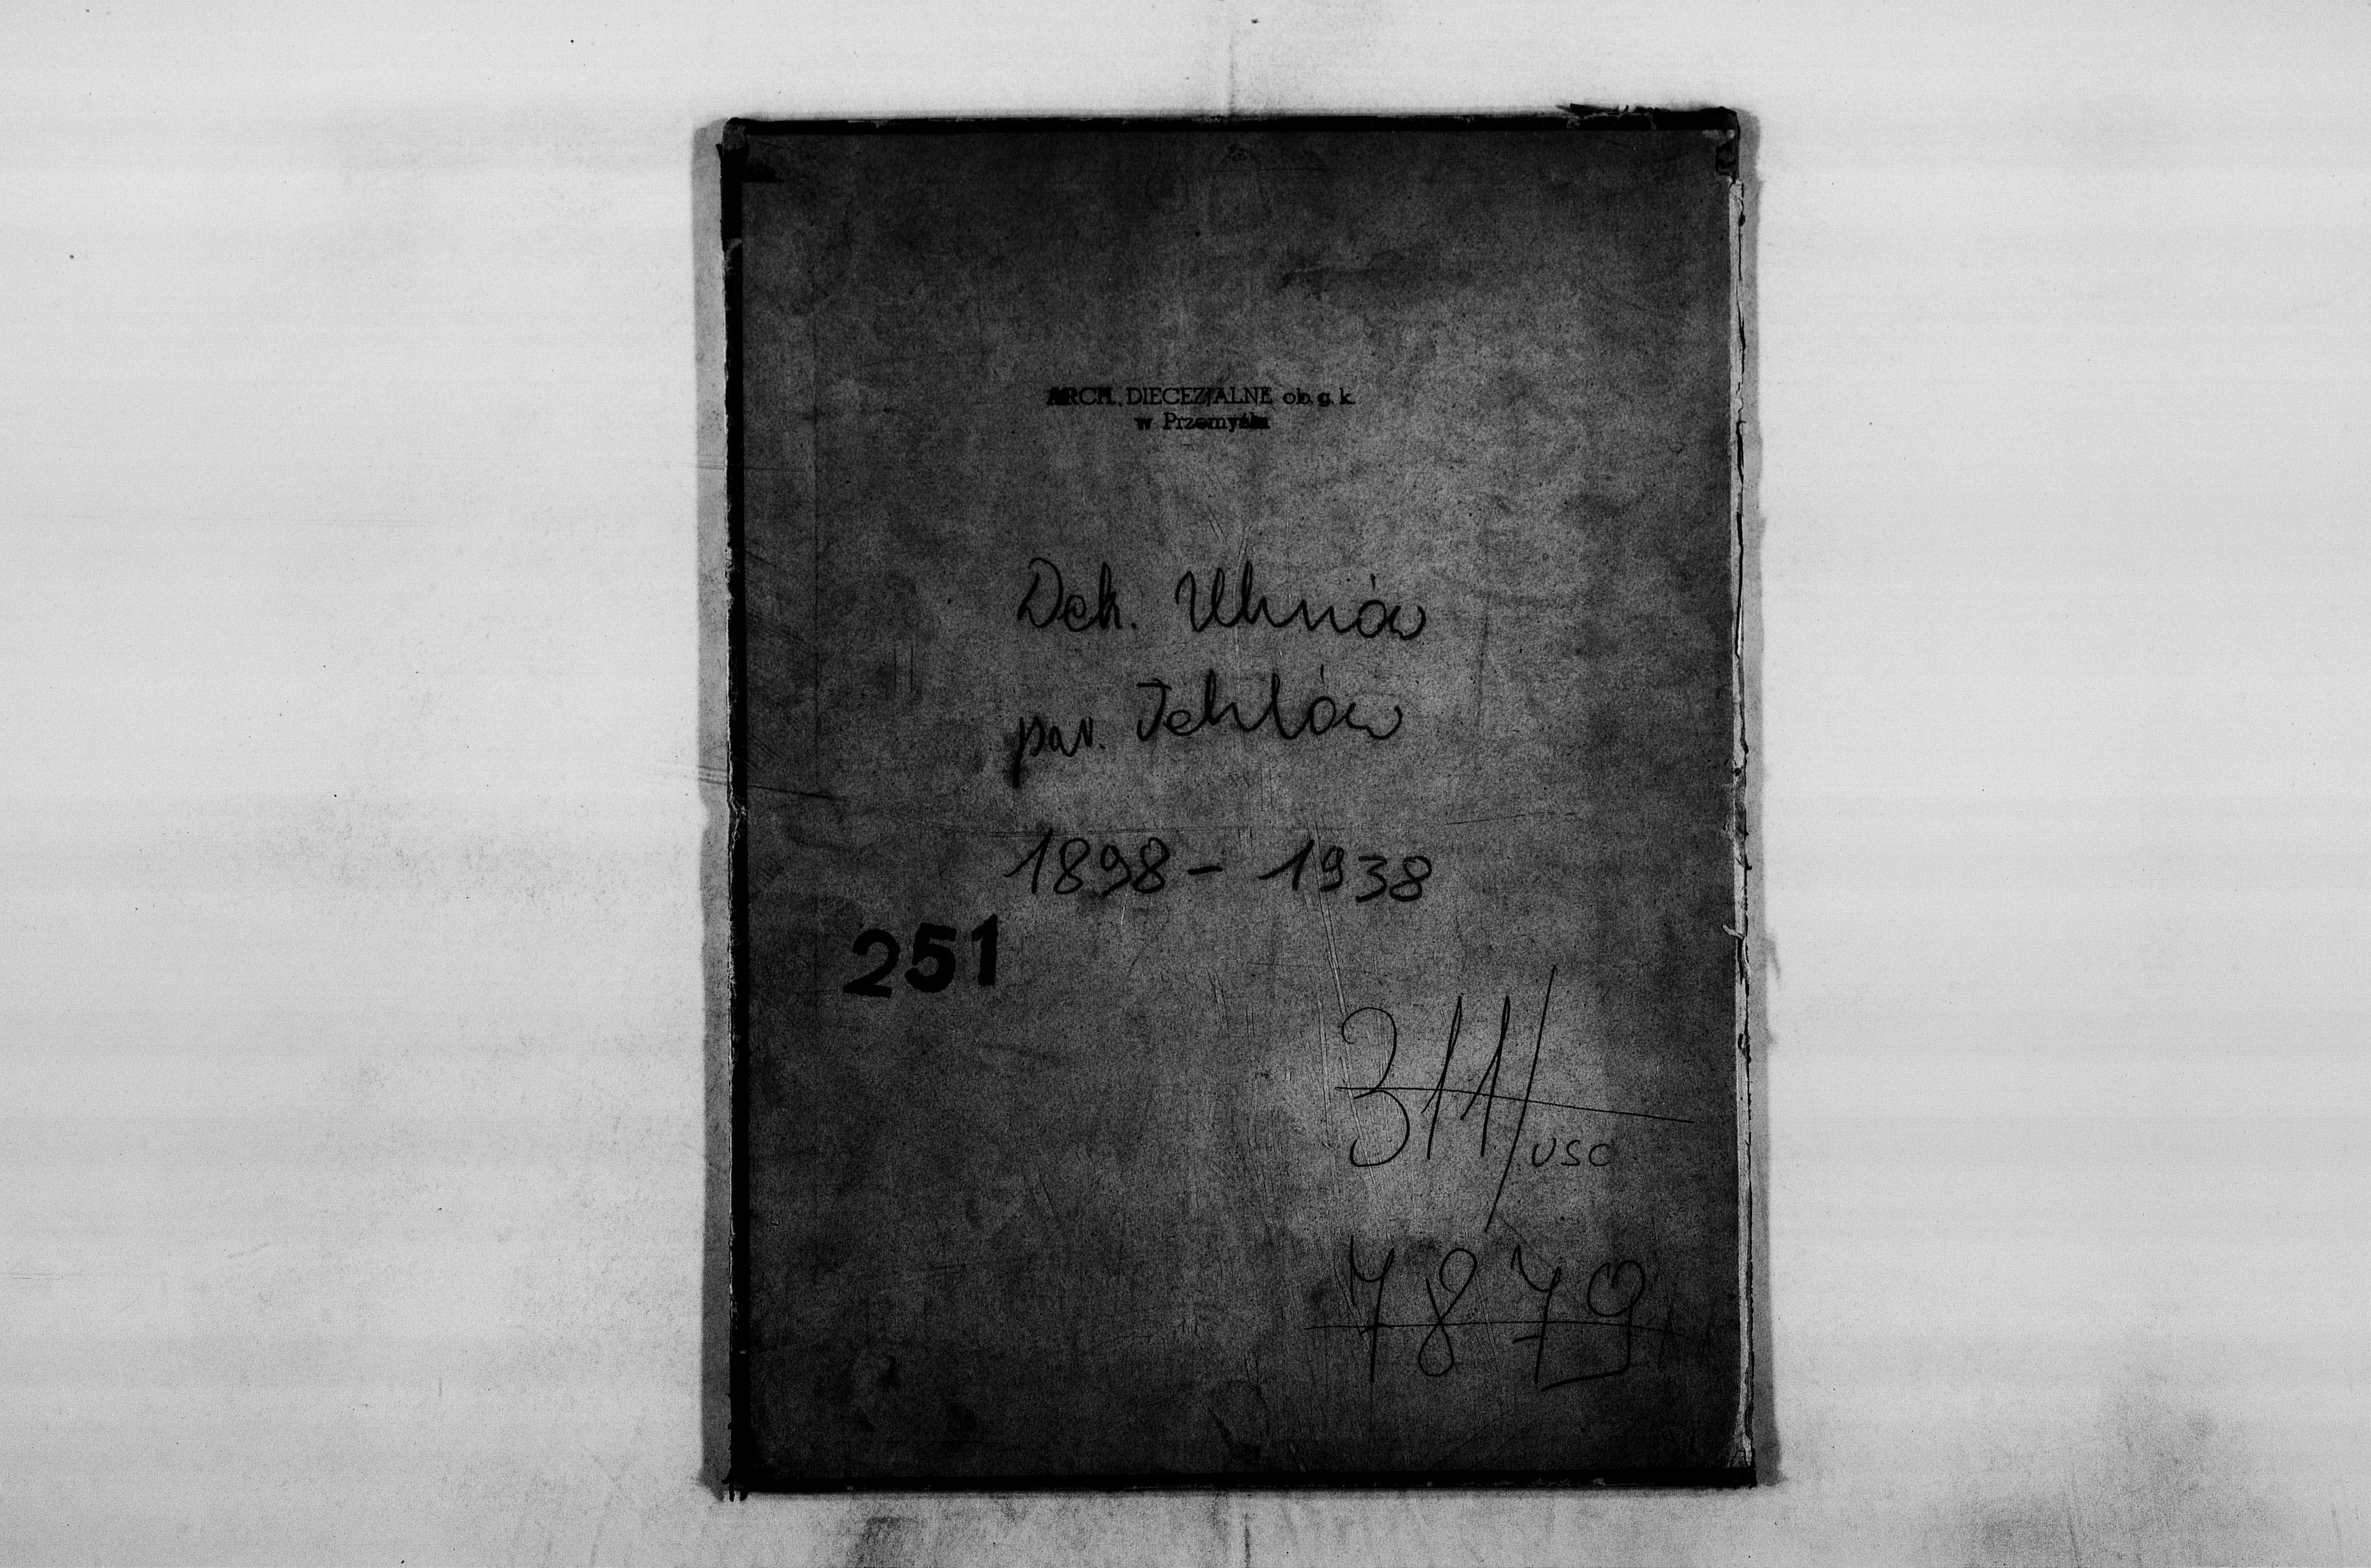 ARCH. DIECEZJALNE ob. g. k.
w Przemyślu
Dek. Uhnów
par. Tehlów
1898 - 1938
251
311/USC
7879